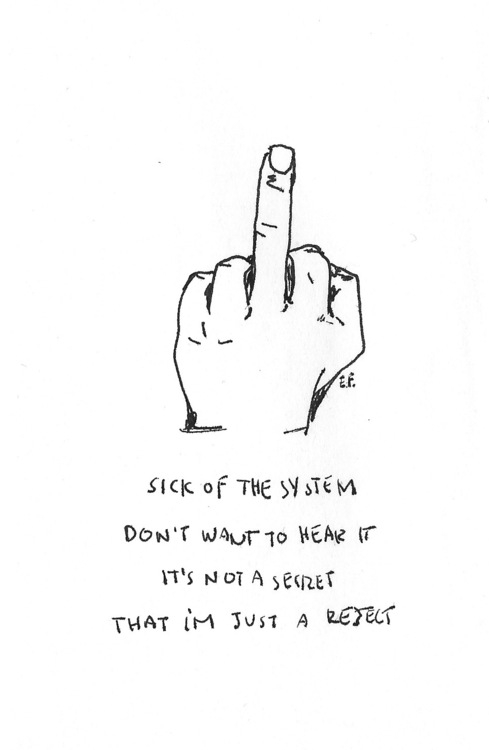 E.F.
SICK OF THE SYSTEM
DON'T WANT TO HEAR IT
IT'S NOT A SECRET
THAT I'M JUST A REJECT